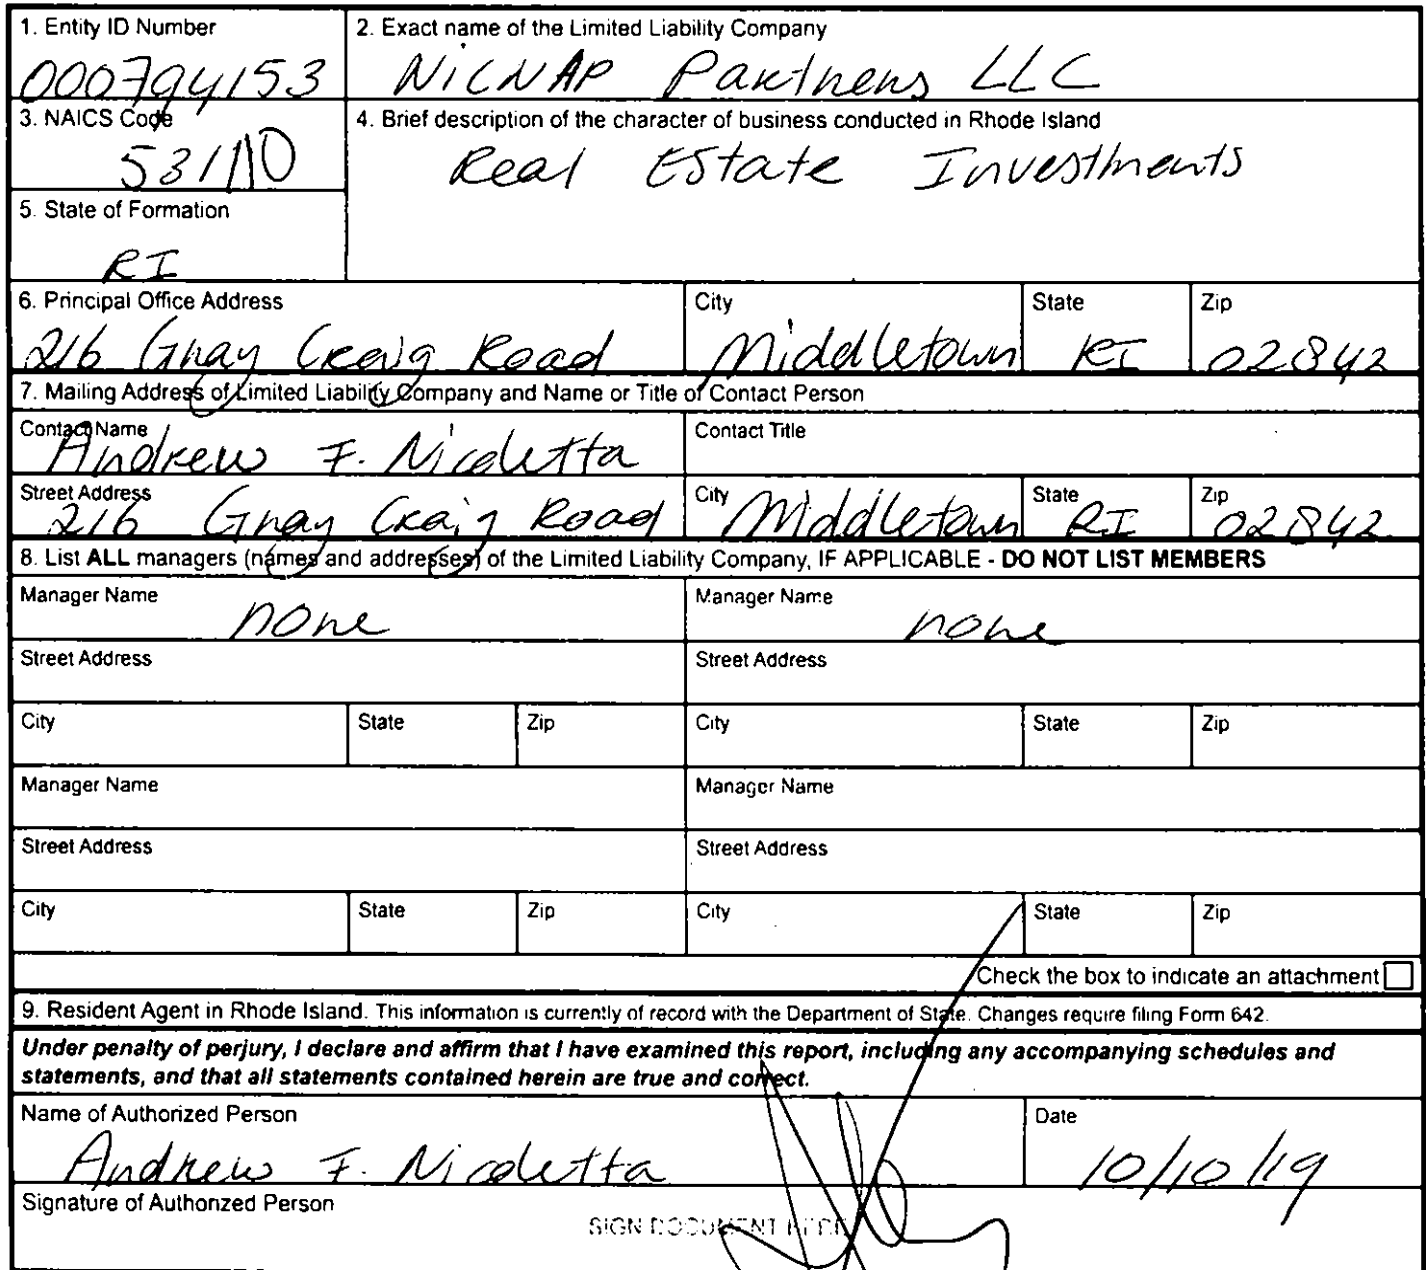 1. Entity ID Number
2. Exact name of the Limited Liability Company
000794153
NICNAP Partners LLC
3. NAICS Code
4. Brief description of the character of business conducted in Rhode Island
531110
Real Estate Investments
5. State of Formation
RI
6. Principal Office Address
City
State
Zip
216 Gray Craig Road
Middletown
RI
02842
7. Mailing Address of Limited Liability Company and Name or Title of Contact Person
Contact Name
Contact Title
Andrew F. Nicoletta
Street Address
City
State
Zip
216 Gray Craig Road
Middletown
RI
02842
8. List ALL managers (names and addresses) of the Limited Liability Company, IF APPLICABLE - DO NOT LIST MEMBERS
Manager Name
Manager Name
none
none
Street Address
Street Address
City
State
Zip
City
State
Zip
Manager Name
Manager Name
Street Address
Street Address
City
State
Zip
City
State
Zip
Check the box to indicate an attachment
9. Resident Agent in Rhode Island. This information is currently of record with the Department of State. Changes require filing Form 642.
Under penalty of perjury, I declare and affirm that I have examined this report, including any accompanying schedules and
statements, and that all statements contained herein are true and correct.
Name of Authorized Person
Date
Andrew F. Nicoletta
10/10/19
Signature of Authorized Person
SIGN DOCUMENT HERE